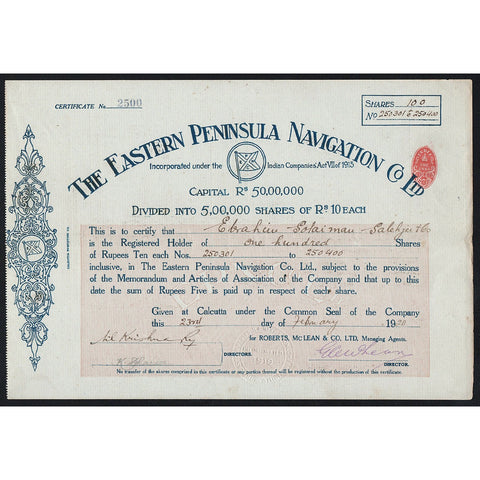 CERTIFICATE No 2500
SHARES 100
No 250301 to 250400
THE EASTERN PENINSULA NAVIGATION Co LTD
Incorporated under the Indian Companies' Act VII of 1913
CAPITAL Rs 50,00,000
DIVIDED INTO 5,00,000 SHARES OF Rs 10 EACH
This is to certify that Ebrahim Solaiman Salehjee & Co
is the Registered Holder of One hundred Shares
of Rupees Ten each Nos. 250301 to 250400
inclusive, in The Eastern Peninsula Navigation Co. Ltd., subject to the provisions
of the Memorandum and Articles of Association of the Company and that up to
this date the sum of Rupees Five is paid up in respect of each share.
Given at Calcutta under the Common Seal of the Company
this 23rd day of February 1920
for ROBERTS, McLEAN & CO. LTD., Managing Agents.
DIRECTORS.
DIRECTOR.
No transfer of the shares comprised in this certificate or any portion thereof will be registered without the production of this certificate.